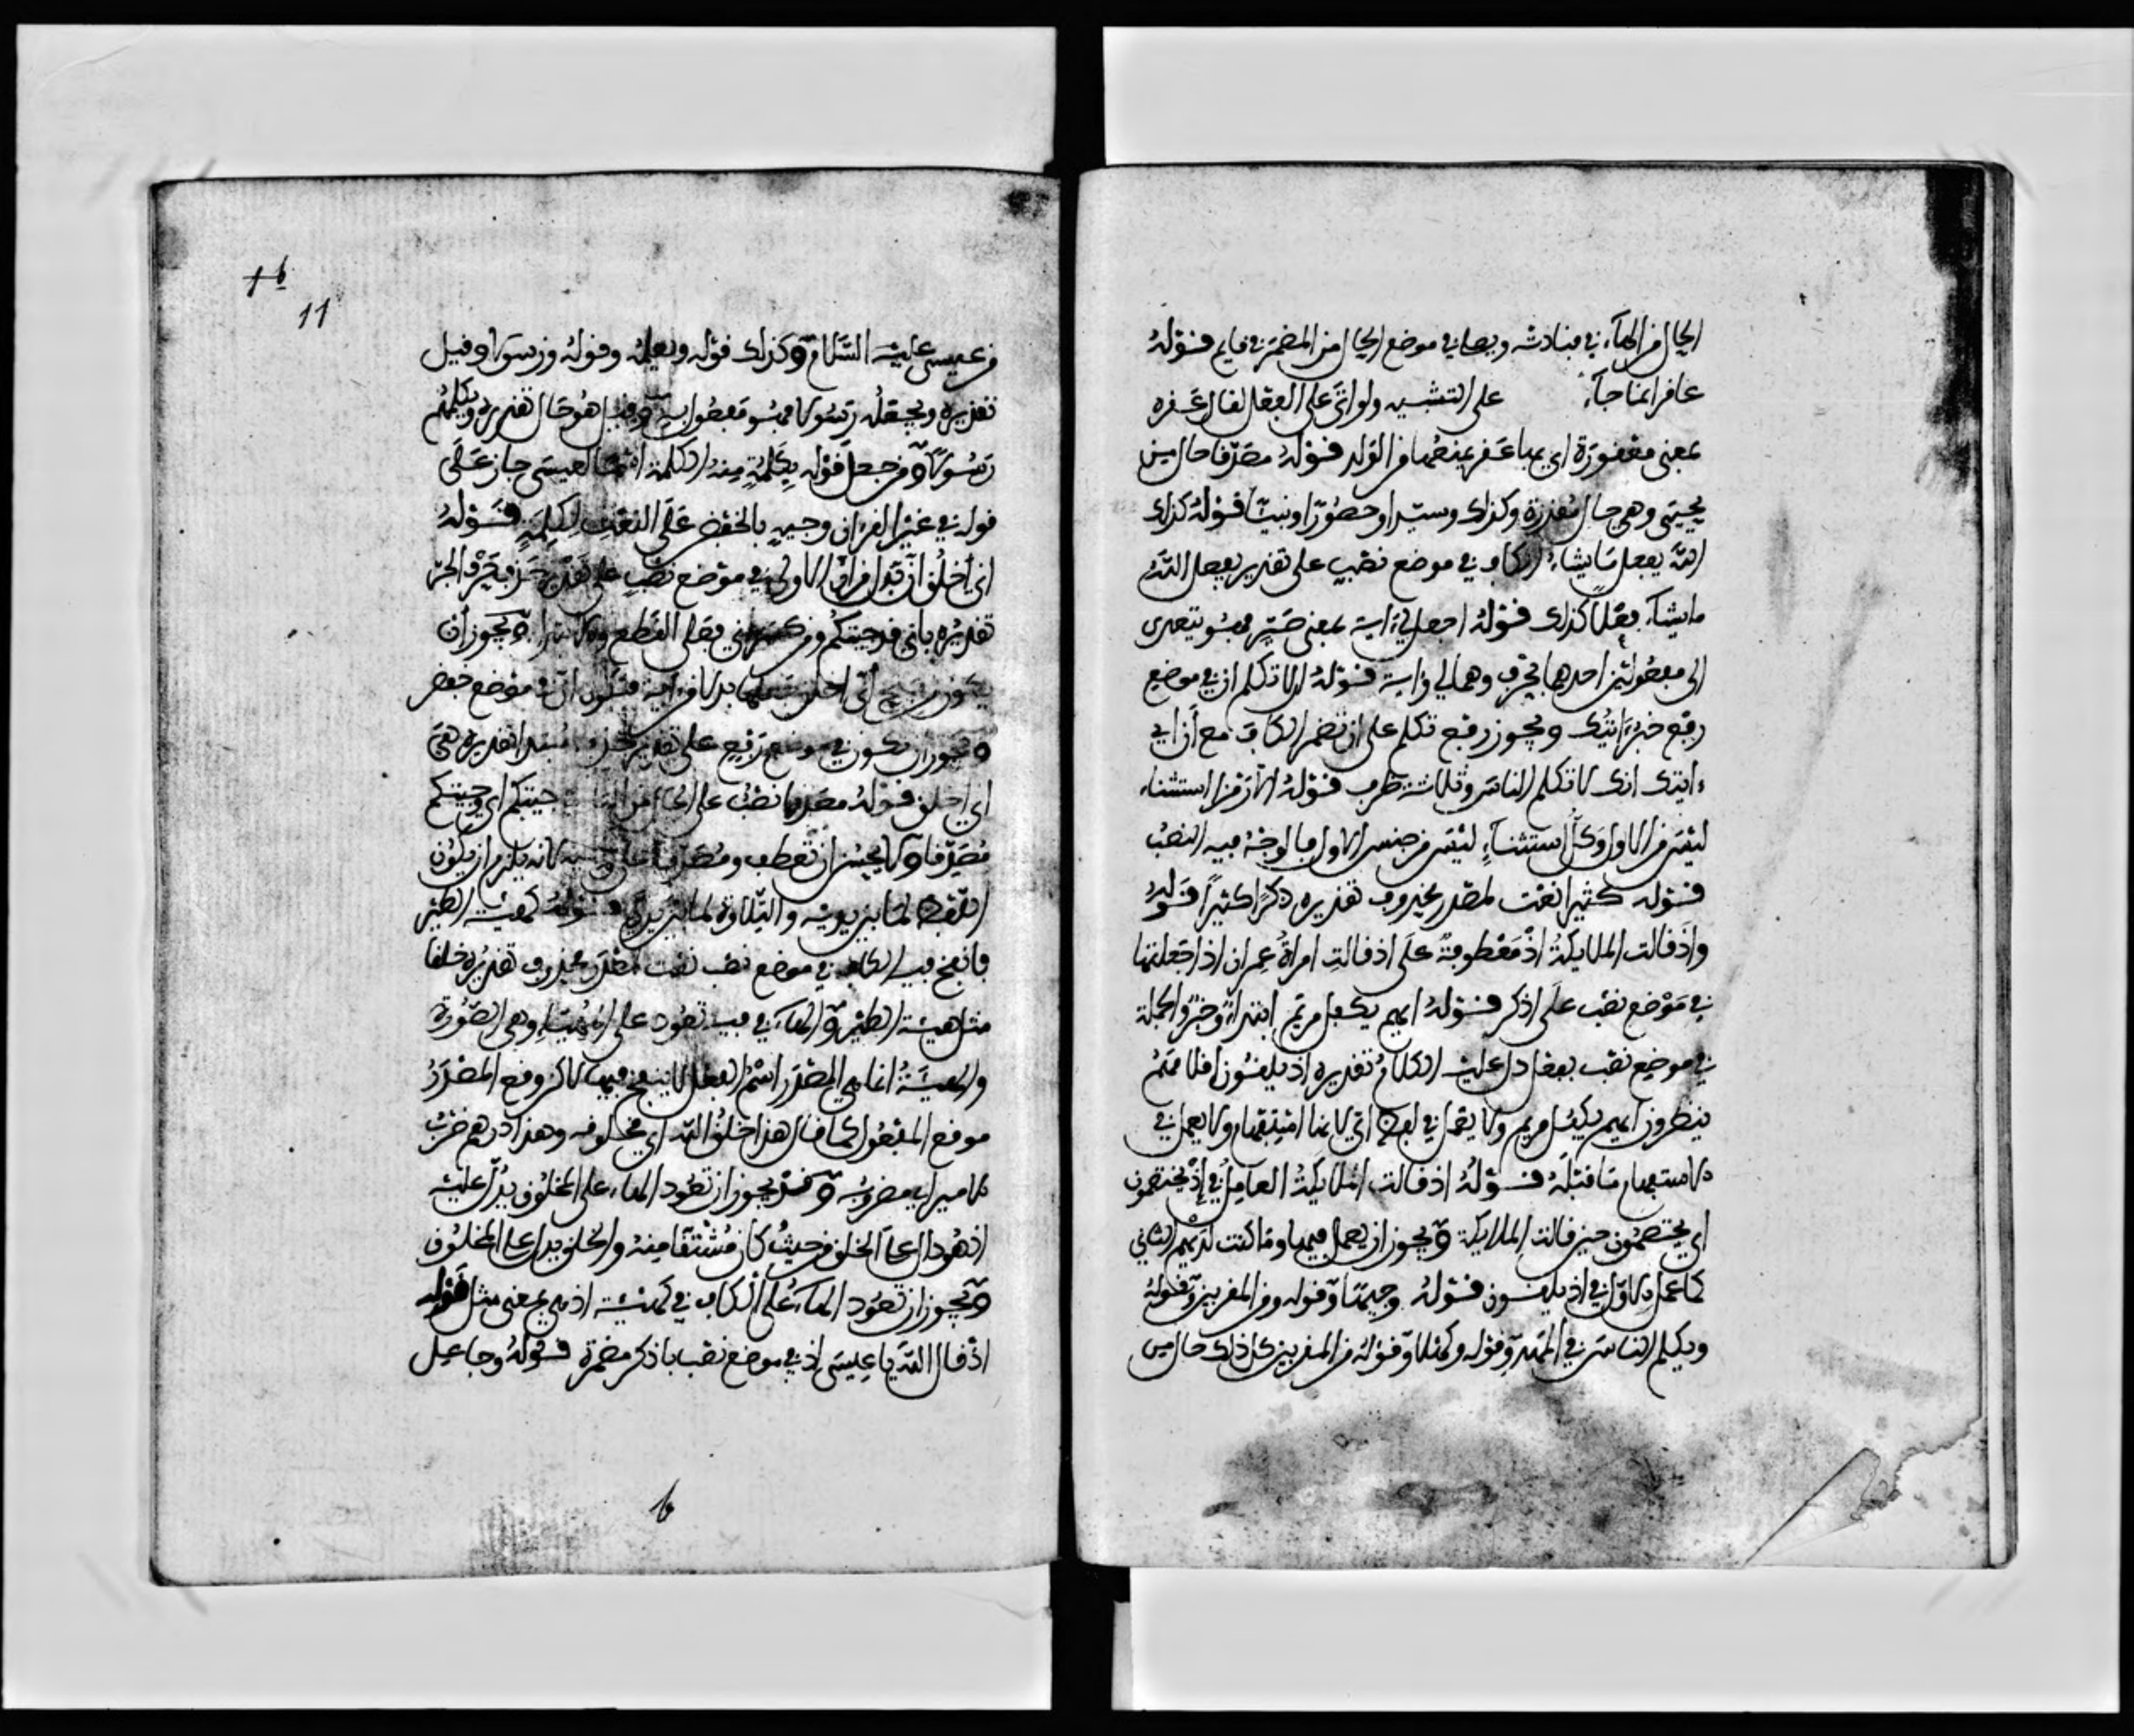 الحال من الهاء في فنادته ويصلي في موضع الحال من المضمر في قايم قوله
عاقر انما جاء على التشبيه ولو اتى على الفعل لقال عقره
بمعنى معقورة اي بها عقر يمنعها من الولد قوله مصدقا حال من
يحيى وهي حال مقدرة وكذلك وسيدا وحصورا ونبيا قوله كذلك
الله يفعل ما يشاء الكاف في موضع نصب على تقدير يفعل الله
ما يشاء فعلا كذلك قوله اجعل لي ءاية بمعنى صير فهو يتعدى
الى مفعولين احدهما بحرف وهما لي وءاية قوله الا تكلم ان في موضع
رفع خبر ءايتك ويجوز رفع تكلم على ان تضمر الكاف مع ان اي
ءايتك انك لا تكلم الناس وثلاثة ظرف قوله الا رمزا استثناء
ليس من الاول وكل استثناء ليس من جنس الاول فالوجه فيه النصب
قوله كثيرا نعت لمصدر محذوف تقديره ذكرا كثيرا قوله
واذ قالت الملايكة اذ معطوفة على اذ قالت امراة عمران اذا جعلتها
في موضع نصب على اذكر قوله ايهم يكفل مريم ابتداء وخبر والجملة
في موضع نصب بفعل دل عليه الكلام تقديره اذ يلقون اقلامهم
ينظرون ايهم يكفل مريم ولا يعمل في لفظ اي لانها استفهام ولا يعمل في
الاستفهام ما قبله قوله اذ قالت الملايكة العامل في اذ يختصمون
اي يختصمون حين قالت الملايكة ويجوز ان يعمل فيها وما كنت لديهم الثاني
كما عمل الاول في اذ يلقون قوله وجيها وقوله ومن المقربين وقوله
ويكلم الناس في المهد وقوله وكهلا وقوله من المقربين كل ذلك حال من
من عيسى عليه السلام وكذلك قوله ويعلمه وقوله ورسولا وقيل
تقديره ويجعله رسولا فهو مفعول به وقيل هو حال تقديره ويكلمهم
رسولا ومن جعل قوله بكلمة منه الكلمة اسما لعيسى جاز على
قوله في غير القران وجيه بالخفض على النعت لكلمة قوله
اني اخلق ان بدل من ان الاولى في موضع نصب على تقدير حذف حرف الجر
تقديره باني قد جيتكم ومن كسر اني فعلى القطع والابتدا ويجوز ان
يكون من فتح اني اخلق جعلها بدلا من ءاية فيكون ان في موضع خفض
ويجوز ان يكون في موضع رفع على تقدير حذف مبتدا تقديره هي
اني اخلق قوله مصدقا نصب على الحال من التاء جيتكم اي وجيتكم
مصدقا ولا يحسن ان تعطف ومصدقا على وجيها لانه يلزم ان يكون
اللفظ لما بين يديه والتلاوة لما بين يدي قوله كهيئة الطير
فانفخ فيه الكاف في موضع نصب نعت لمصدر محذوف تقديره خلقا
مثل هيئة الطير والهاء في فيه تعود على الهيئة وهي الصورة
والهيئة انما هي المصدر اسم الفعل لا ينفخ فيها لاكن وقع المصدر
موقع المفعول كما قال هذا خلق الله اي مخلوقه وهذا درهم ضرب
الامير اي مضروبه وقد يجوز ان تعود الهاء على المخلوق يدل عليه
اذ هو دال على الخلق من حيث كان مشتقا منه والخلق يدل على المخلوق
ويجوز ان تعود الهاء على الكاف في كهيئة اذ هي بمعنى مثل قوله
اذ قال الله يا عيسى اذ في موضع نصب باذكر مضمرة قوله وجاعل
11